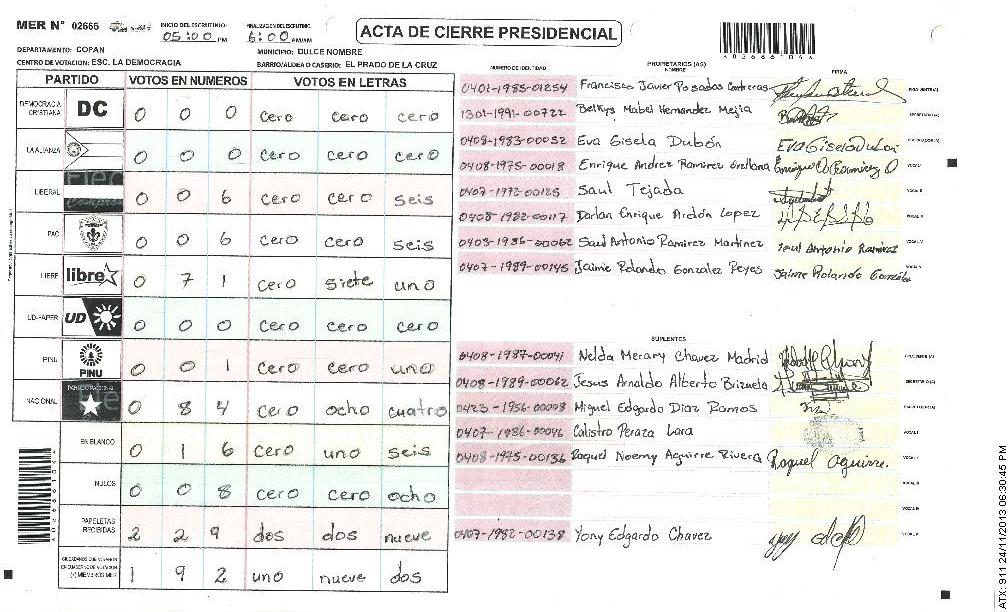 MER N° 02666
INICIO DEL ESCRUTINIO: 05:00 PM
FINALIZACION DEL ESCRUTINIO: 6:00 PM/AM
ACTA DE CIERRE PRESIDENCIAL
A02666106A
DEPARTAMENTO: COPAN
MUNICIPIO: DULCE NOMBRE
CENTRO DE VOTACION: ESC. LA DEMOCRACIA
BARRIO/ALDEA O CASERIO: EL PRADO DE LA CRUZ
PARTIDO VOTOS EN NUMEROS VOTOS EN LETRAS
DEMOCRACIA CRISTIANA DC 0 0 0 cero cero cero
LA ALIANZA 0 0 0 cero cero cero
LIBERAL 0 0 6 cero cero seis
PAC 0 0 6 cero cero seis
LIBRE libre 0 7 1 cero siete uno
UD-FAPER UD 0 0 0 cero cero cero
PINU PINU 0 0 1 cero cero uno
NACIONAL 0 8 4 cero ocho cuatro
EN BLANCO 0 1 6 cero uno seis
NULOS 0 0 8 cero cero ocho
PAPELETAS RECIBIDAS 2 2 9 dos dos nueve
CIUDADANOS QUE VOTARON EN CUADERNO DE VOTACION (+) MIEMBROS MER 1 9 2 uno nueve dos
NUMERO DE IDENTIDAD PROPIETARIOS (AS) NOMBRE FIRMA
0401-1985-01254 Francisco Javier Posadas Contreras
1301-1991-00722 Belkys Mabel Hernandez Mejia
0408-1983-00052 Eva Gisela Dubón Eva Gisela Dubon
0408-1975-00018 Enrique Andrez Ramirez Orellana
0407-1972-00125 Saul Tejada
0408-1982-00117 Darlan Enrique Ardón Lopez
0403-1986-00062 Saul Antonio Ramirez Martinez Saul Antonio Ramirez
0407-1989-00145 Jaime Rolando Gonzalez Reyes Jaime Rolando Gonzalez
SUPLENTES
0408-1987-00041 Nelda Merary Chavez Madrid
0408-1989-00062 Jesus Arnaldo Alberto Brizuela
0423-1956-00008 Miguel Edgardo Diaz Ramos
0407-1986-00046 Calistro Peraza Lara
0408-1975-00136 Raquel Noemy Aguirre Rivera Raquel Aguirre.
0407-1982-00138 Yony Edgardo Chavez
ATX: 911 24/11/2013 06:30:45 PM